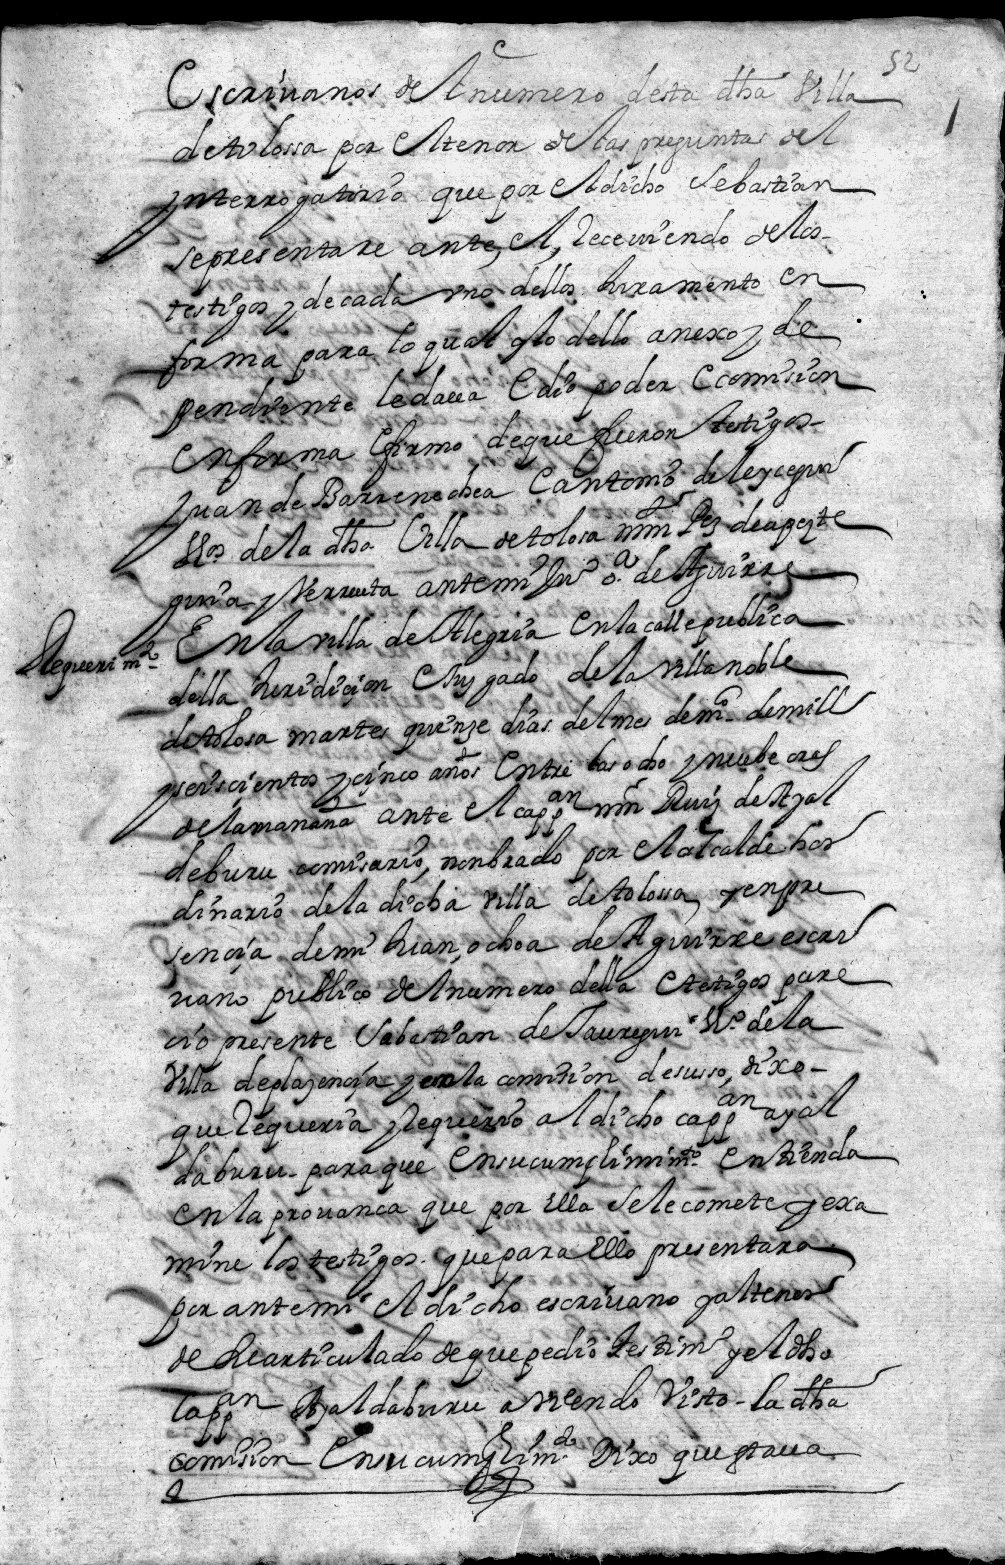 52
Escriuanos del numero desta dha Villa
de tolossa por el tenor de las preguntas del
ynterrogatorio que por el dicho sebastian
se presentare ante, el, Receuiendo de los
testigos y de cada vno dellos Juramento en
forma para lo qual y lo dello anexo y de
pendiente le daua E dio poder E comission
en forma E firmo de que fueron testigos
Juan de Barrenechea E antonio de leyçegui
Vos de la dha Villa de tolosa mrn Pez de apezte
guia y Verrueta ante mi Ju o.a de Aguirre
Requerimto
En la villa de Alegria en la calle publica
della Juridicion E Juzgado de la villa noble
de tolosa martes quinze dias del mes de mço de mill
y seiscientos y cinco años Entre las ocho y nuebe oras
de la mañana ante el cappan mrn Ruiz de Ayal
deburu comisario, nonbrado por el alcalde hor
dinario de la dicha villa de tolossa, y en pre
sencia de mi Juan, ochoa de Aguirre escri
uano publico del numero della E testigos pare
cio presente Sabastian de Jauregui Vo de la
Villa de plazencia y en la comision de susso, dixo
que Requeria y Requerio al dicho cappan ayal
daburu para que en su cumplimimto entienda
en la prouança que por Ella se le comete y exa
mine los testigos que para Ello presentara
por ante mi el dicho escriuano y al tenor
de he articulado de que pedio testimo y el dho
Cappan Ayaldaburu aviendo Visto la dha
comision En su cumplimto Dixo que estaua